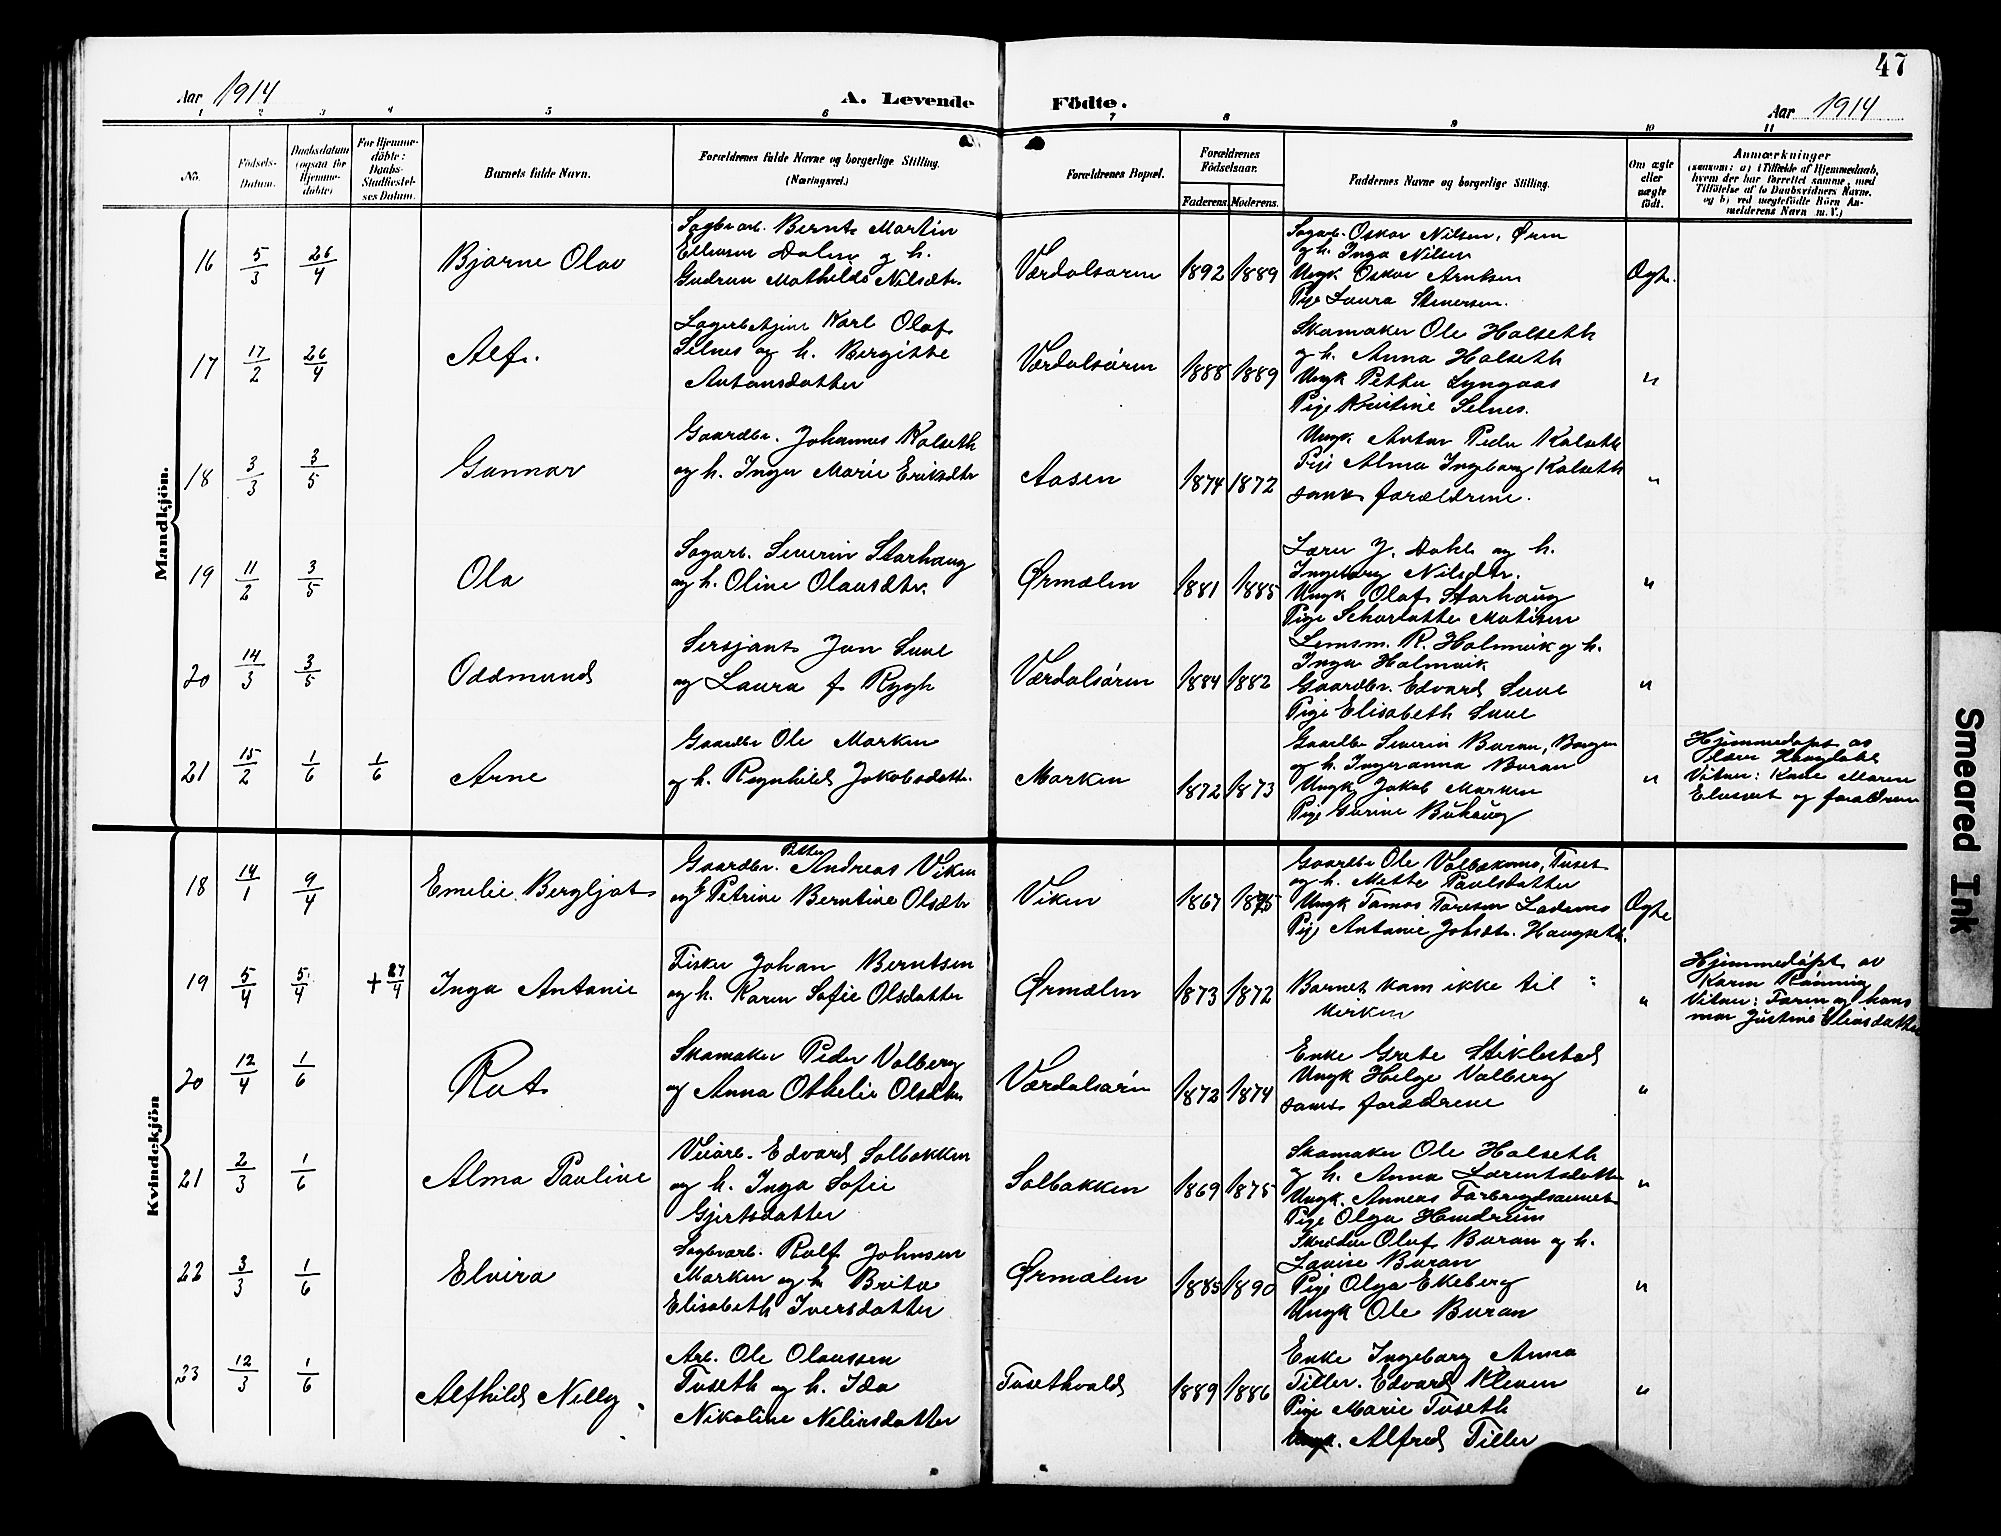 47
Aar 1914
A. Levende
Födte.
Aar 1914
1 2 3 4 5 6 7 8 9 10 11
No.
Födsels-
Datum.
Daabsdatum
(ogsaa for
Hjemme-
döbte)
For Hjemme-
döbte:
Daabs-
Stadfæstel-
ses Datum.
Barnets fulde Navn.
Forældrenes fulde Navne og borgerlige Stilling.
(Næringsvei.)
Forældrenes Bopæl.
Forældrenes
Födselsaar.
Faderens.
Moderens.
Faddernes Navne og borgerlige Stilling.
Om ægte
eller
uægte
födt.
Anmærkninger
(saasom: a) i Tilfælde af Hjemmedaab,
hvem der har forrettet samme, med
Tilföielse af to Daabsvidners Navne.
og b) ved uægtefödte Börn An-
melderens Navn m. V.)
Mandkjön.
16 5/3 26/4 Bjarne Olav
Sagbrarb. Bernt Martin
Ellevsen Dalin og h.
Gudrun Mathilde Nilsdtr.
Værdalsøren 1892 1889
Sagarb. Oskar Nilsen, Øren
og h. Inga Nilsen
Ungk Oskar Arntsen
Pige Laura Stenersen.
Ægte.
17 17/2 26/4 Alf.
Lagerbetjent Karl Olaf
Selnes og h. Bergitte
Antonsdatter
Værdalsøren 1888 1889
Skomaker Ole Halseth
og h. Anna Halseth
Ungk Petter Lyngaas
Pige Kristine Selnes.
"
18 3/3 3/5 Gunnar
Gaardbr. Johannes Kalseth
og h. Inger Marie Eriksdtr
Aasen 1874 1872
Ungk Anton Peder Kalseth
Pige Alma Ingeborg Kalseth
samt forældrene.
"
19 11/2 3/5 Ola
Sagarb. Severin Storhaug
og h. Oline Olausdtr.
Ørmælen 1881 1885
Lærer J. Dahl og h.
Ingeborg Nilsdtr.
Ungk Olaf Storhaug
Pige Scharlotte Matisen
"
20 14/3 3/5 Oddmund
Sersjant Jon Suul
og Laura f. Rygh
Værdalsøren 1884 1882
Lensm. R. Holmvik og h.
Inga Holmvik
Gaardbr. Edvard Suul
Pige Elisabeth Suul
"
21 15/2 1/6 1/6 Arne
Gaardbr Ole Marken
og h. Regnhild Jakobsdatter
Marken 1872 1873
Gaardbr Severin Buran, Borgen
og h. Ingeranna Buran
Ungk Jakob Marken
Pige Gurine Buhaug
"
Hjemmedøpt av
Olaus Haugdahl
Vitner: Kone Maren
og forældrene
Kvindekjön
18 14/1 9/4 Emelie Bergljot
Petter
Gaardbr. Andreas Viken
og h Petrine Berntine Olsdtr
Viken 1867 1875
Gaardbr Ole Valbekmo, Tuset
og h. Mette Paulsdatter
Ungk Tomas Toresen Lademo
Pige Antonie Johsdtr. Haugseth.
Ægte
19 5/4 5/4 + 27/4 Inga Antonie
Fisker Johan Berntsen
og h. Karen Sofie Olsdatter
Ørmælen 1873 1872
Barnet kom ikke til
kirken
"
Hjemmedøpt av
Karen Rønning
Vitner: Faren og hans
mor Justine Eliasdatter
20 12/4 1/6 Rut
Skomaker Peder Volberg
og Anna Othelie Olsdtr
Værdalsørn 1872 1874
Enke Grete Stiklestad
Ungk Helge Volberg
samt forældrene
"
21 2/3 1/6 Alma Pauline
Veiarb. Edvard Solbakken
og h. Inga Sofie
Gjertsdatter
Solbakken 1869 1875
Skomaker Ole Halseth
og h. Anna Lorentsdatter
Ungk. Anneas Forbregdsaunet
Pige Olga Hemdrum
"
22 3/3 1/6 Elvira
Sagbrarb. Rolf Johnsen
Marken og h. Brita
Elisabeth Iversdatter
Ørmælen 1885 1890
Skrædder Oluf Buran og h.
Lovise Buran
Pige Olga Ekeberg
Ungk Ole Buran
"
23 12/3 1/6 Alfhild Nelly
Arb. Ole Olaussen
Tuseth og h. Ida
Nikoline Neliusdatter
Tusethvald 1889 1886
Enke Ingeborg Anna
Tiller. Edvard Kleven
Pige Marie Tuseth
Ungk. Alfred Tiller
"
Smeared Ink